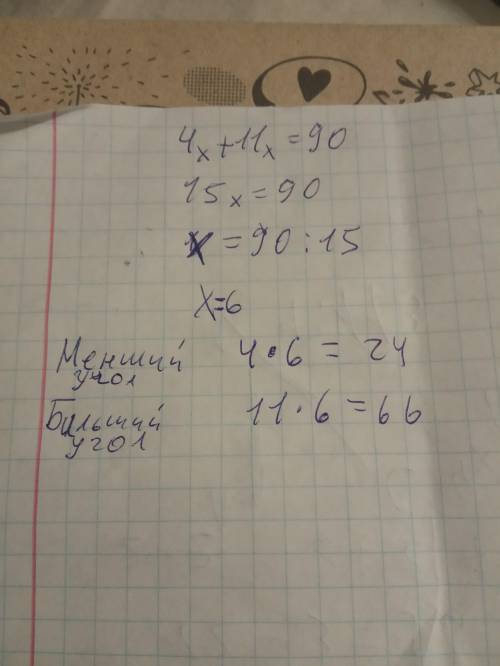 4x+11x=90
15x=90
x=90:15
x=6
Менший угол 4·6=24
Больший угол 11·6=66